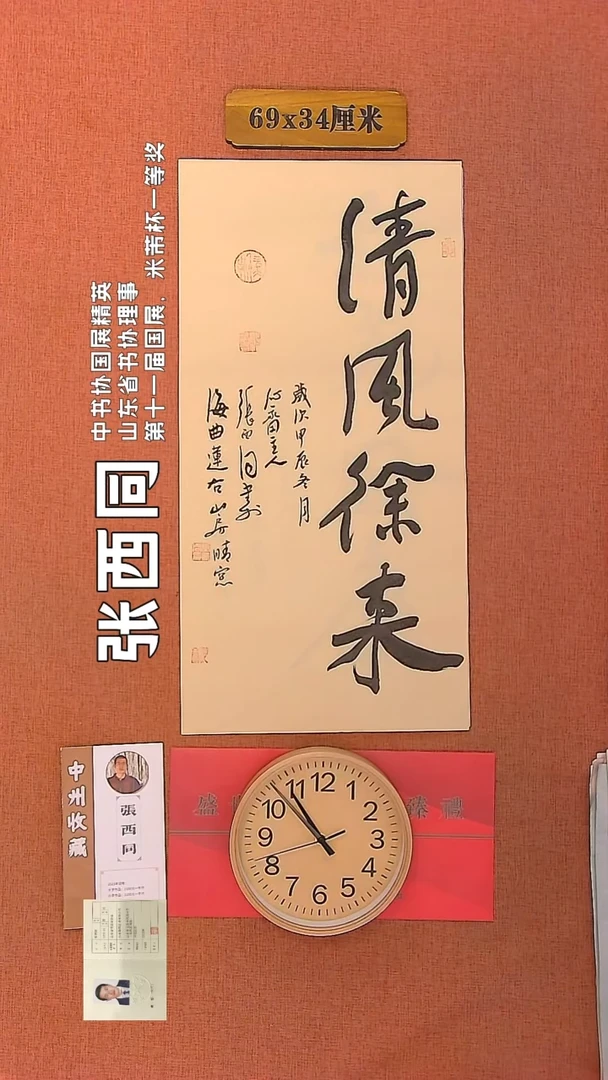 69x34厘米
清風徐来
歲次甲辰冬月
沁齋主人
張西同書於
海曲蓮石山房晴窓
中书协国展精英
山东省书协理事
第十一届国展，米芾杯一等奖
张西同
張西同
盛
臻禮
12
1
2
3
4
5
6
7
8
9
10
11